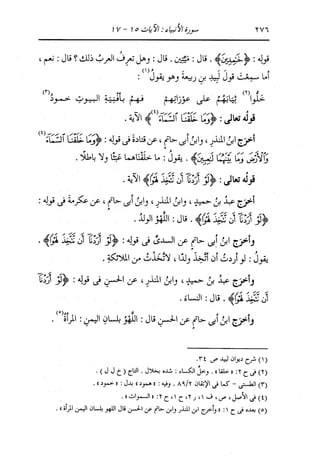 ٢٧٦ سورة الأنبياء : الآيات ١٥ - ١٧
قوله : ﴿خَٰمِدِينَ﴾ . قال : ميِّتين . قال : وهل تعرفُ العربُ ذلك ؟ قال : نعم ،
أما سمِعْتَ قولَ لَبيدِ بنِ ربيعةَ وهو يقولُ(١) :
خَلُّوا(٢) ثِيابَهُمُ على عوْراتِهم فهمُ بأَفْنِيَةِ البيوتِ خمودُ(٣)
قولُه تعالى : ﴿وَمَا خَلَقْنَا ٱلسَّمَآءَ(٤)﴾ الآية .
أخرَج ابنُ المنذرِ ، وابنُ أبى حاتمٍ ، عن قتادةَ فى قولِه : ﴿وَمَا خَلَقْنَا ٱلسَّمَآءَ(٤)
وَٱلْأَرْضَ وَمَا بَيْنَهُمَا لَٰعِبِينَ﴾ . يقولُ : ما خلَقناهما عبثًا ولا باطلًا .
قولُه تعالى : ﴿لَوْ أَرَدْنَآ أَن نَّتَّخِذَ لَهْوًا﴾ الآية .
أخرَج عبدُ بنُ حميدٍ ، وابنُ المنذرِ ، وابنُ أبى حاتمٍ ، عن عكرمةَ فى قولِه :
﴿لَوْ أَرَدْنَآ أَن نَّتَّخِذَ لَهْوًا﴾ . قال : اللَّهْوُ الولدُ .
وأخرَج ابنُ أبى حاتمٍ عن السدىِّ فى قولِه : ﴿لَوْ أَرَدْنَآ أَن نَّتَّخِذَ لَهْوًا﴾ .
يقولُ : لو أردتُ أن أتَّخِذَ ولدًا ، لاتَّخَذْتُ من الملائكةِ .
وأخرَج عبدُ بنُ حميدٍ ، وابنُ المنذرِ ، عن الحسنِ فى قولِه : ﴿لَوْ أَرَدْنَآ
أَن نَّتَّخِذَ لَهْوًا﴾ . قال : النساءَ .
وأخرَج ابنُ أبى حاتمٍ عن الحسنِ قال : اللَّهْوُ بلسانِ اليمنِ : المرأةُ(٥) .
(١) شرح ديوان لبيد ص ٣٤.
(٢) فى ح ٢: «خلفا» . وخلَّ الكساء : شده بخلال . التاج (خ ل ل) .
(٣) الطستى - كما فى الإتقان ٨٩/٢ . وفيه : «همود» بدل : «خمود» .
(٤) فى الأصل ، ص ، ف ١، ر ٢، ح ١، ح ٢: «السموات» .
(٥) بعده فى ح ١: «وأخرج ابن المنذر وابن أبى حاتم عن الحسن قال اللهو بلسان اليمن المرأة» .